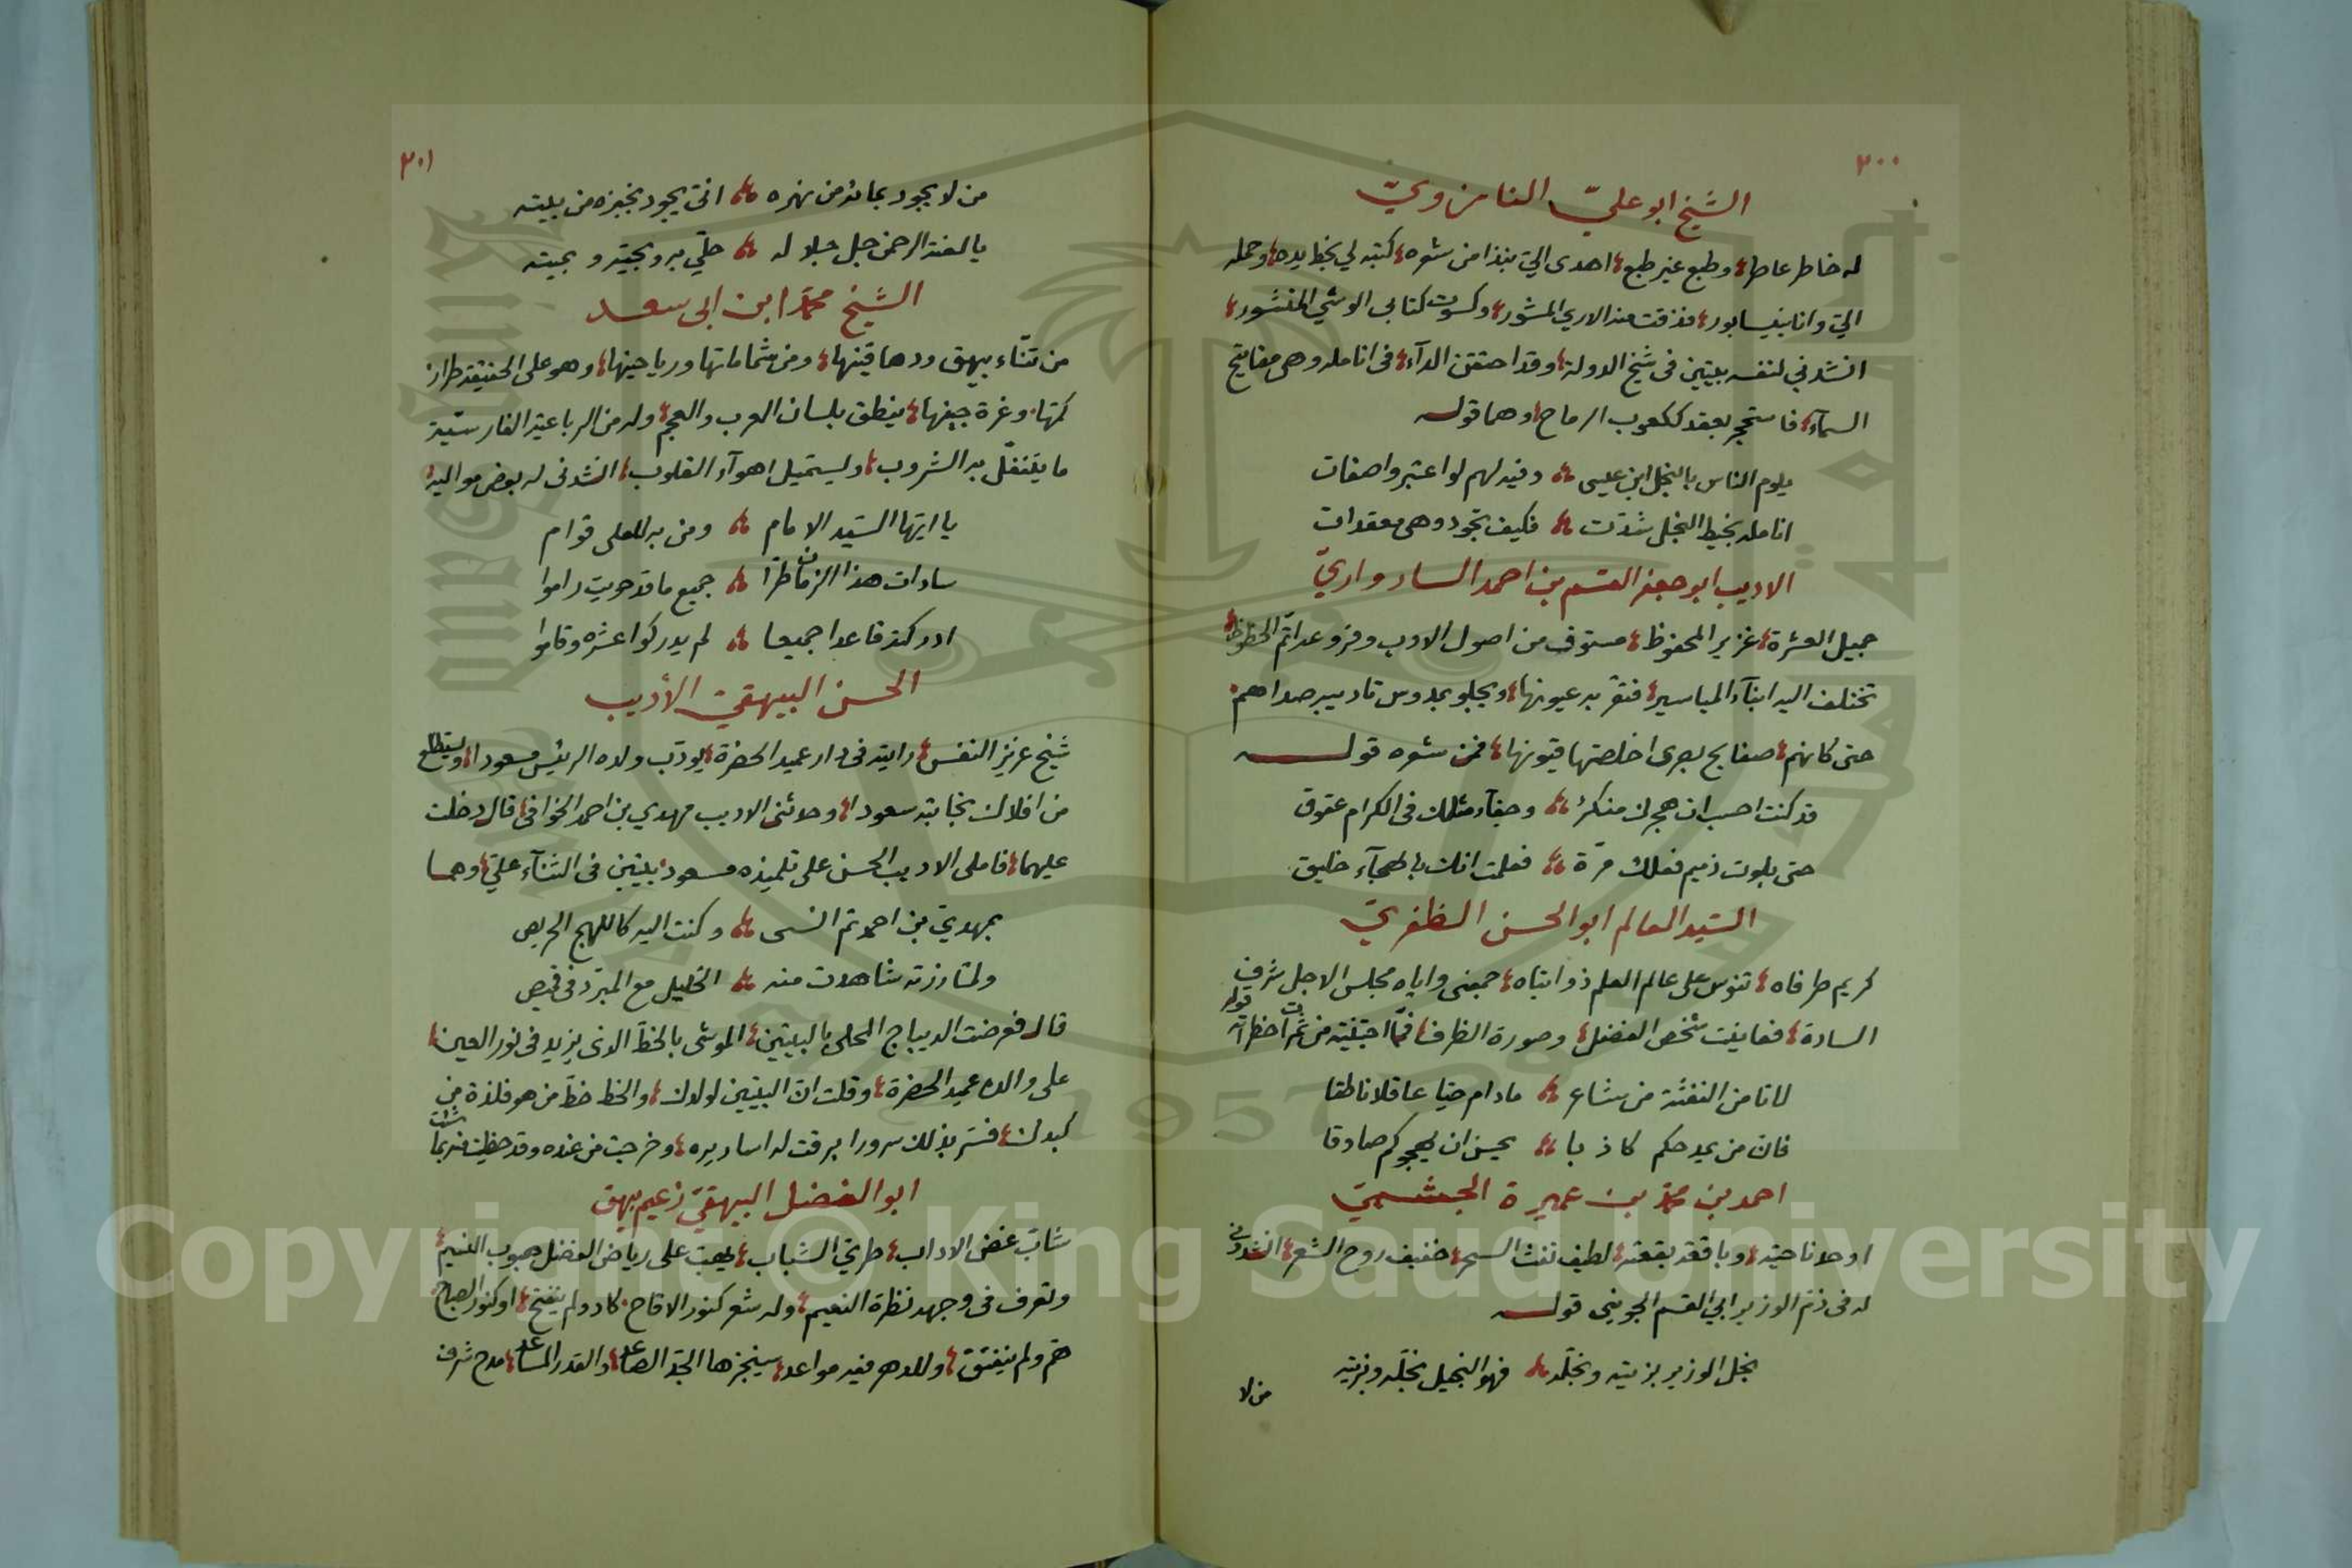 ٣٠٠
الشيخ ابو علي النامزوي
له خاطر عاطر وطبع غير طبع اهدى الي نبذا من شعره كتبه لي بخط يده وحمله
الي وانا بنيسابور فذقت منه الاري المشور وكسوت كتابي الوشي المنشور
انشدني لنفسه بيتين في شيخ الدولة وقد احتقن الدآء في انامله وهي مفاتيح
السمآء فاستحجر بعقد ككعوب الرماح وهما قوله
يلوم الناس بالبخل ابن عيسى وفيه لهم لو اعتبروا صفات
انامله بخيط البخل شدّت فكيف تجود وهي معقدات
الاديب ابو جعفر القسم بن احمد الساد واري
جميل العشرة غزير المحفوظ مستوف من اصول الادب وفروعه اتم الحظوظ
تختلف اليه ابنآء المياسير فتقر به عيونها ويجلو بمدوس تاديبه صداهم
حتى كانهم صفايح بصرى اخلصتها قيونها فمن شعره قوله
قد كنت احسب ان هجرك منكر وجفآء مثلك في الكرام عقوق
حتى بلوت ذميم فعلك مرّة فعلمت انك بالهجآء خليق
السّيد العالم ابو الحسن الظفري
كريم طرفاه تنوس على عالم العلم ذوابتاه جمعني واياه مجلس الاجل شرف
السادة فعاينت شخص الفضل وصورة الظرف فمّا اجتنيته من ثمرات خطراته قوله
لا تامن النفثة من شاعر مادام حيا عاقلا ناطقا
فان من يمدحكم كاذبا يحسن ان يهجوكم صادقا
احمد بن محمد بن عميرة الجشمي
اوحد ناحيته وباقعة بقعته لطيف نفث السحر خفيف روح الشعر انشدوني
له في ذم الوزير ابي القسم الجويني قوله
بخل الوزير بزيته وبخلّه فهو البخيل بخلّه وبزيته
من لا
٣٠١
من لا يجود بمائه من نهره انّى يجود بخبزه من بيته
يا لعنة الرحمن جل جلاله حلّي به وبحيّه وبميته
الشيخ محمد ابن ابي سعد
من تنّاء بيهق ودهاقينها ومن شماماتها ورياحينها وهو على الحقيقة طراز
كمّها وغرة جبينها ينطق بلسان العرب والعجم وله من الرباعية الفارسيّة
ما يتنقّل به الشروب ويستميل اهوآء القلوب انشدني له بعض مواليه
يا ايها السّيد الامام ومن به للعلى قوام
سادات هذا الزمان طرّا جميع ما قد حويت راموا
ادركته قاعدا جميعا لم يدركوا عشره وقاموا
الحسن البيهقي الأديب
شيخ عزيز النفس رايته في دار عميد الحضرة يودّب ولده الرئيس مسعودا ويستطلع
من افلاك نجابته سعودا وحدثني الاديب مهدي بن احمد الخوافي قال دخلت
عليهما فاملى الاديب الحسن على تلميذه مسعود بيتين في الثنآء عليّ وهما
بمهديّ بن احمد تم انسى وكنت اليه كاللهج الحريص
ولمّا زرته شاهدت منه الخليل مع المبرّد في قميص
قال فعرضت الديباج المحلى بالبيتين الموشى بالخط الذي يزيد في نور العين
على والده عميد الحضرة وقلت انّ البيتين لولدك والخط خط من هو فلذة من
كبدك فسرّ بذلك سرورا برقت له اساريره وخرجت من عنده وقد حظيت منه بما شئت
ابو الفضل البيهقي زعيم بيهق
شابّ غض الاداب طريّ الشباب يهب على رياض الفضل هبوب النسيم
وتعرف في وجهه نظرة النعيم وله شعر كنور الاقاح كاد ولم يفتح او كنور الصباح
همّ ولم ينفتق وللدهر فيه مواعد سينجزها الجد الصاعد والقدر المساعد مدح شرف